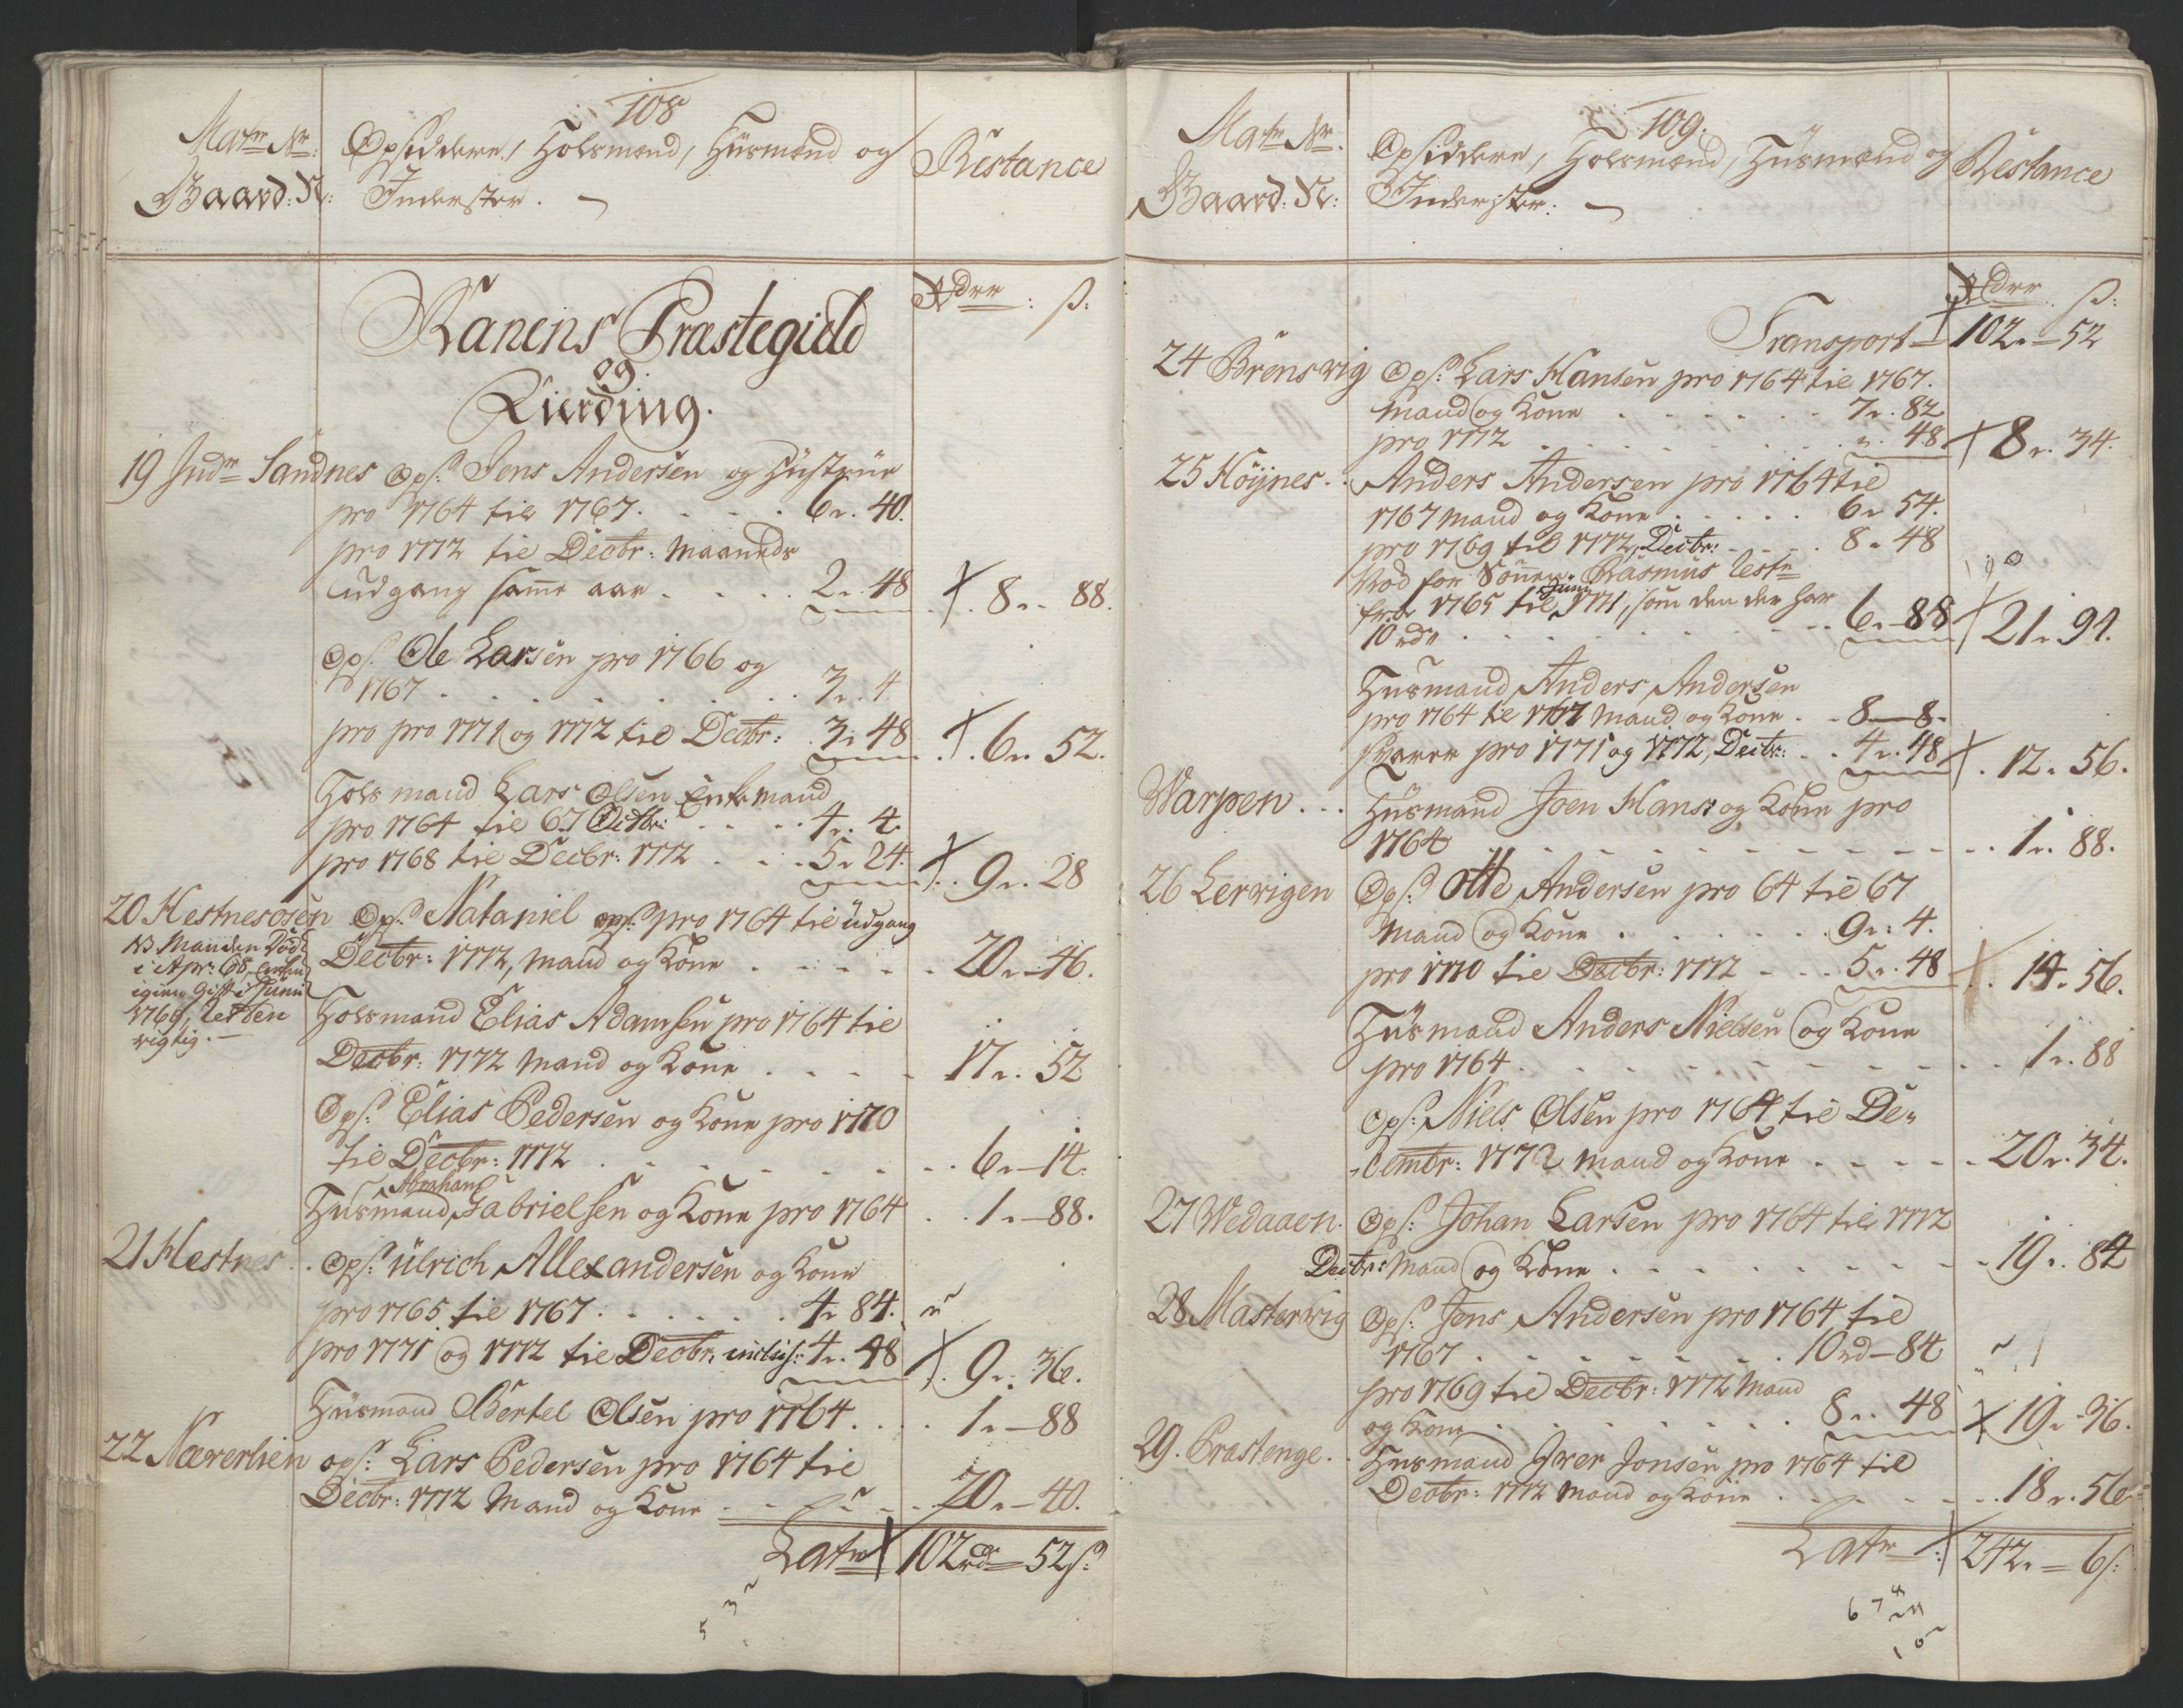 108
Matr Nr:
Gaard: N:
Opsiddere, Holsmænd, Husmænd og
Inderster. —
Restance
Rdrr : ß:
Ranens Præstegield
og
Fierding.
19 Indr Sandnes Ops: Jens Andersen og Hustrue
pro 1764 til 1767. . . . . 6 r. 40.
pro 1772 til Decbr: Maaneds
udgang samme aar . . . . 2 r. 48 8 r. 88.
Ops: Ole Larsen pro 1766 og
1767 . . . . . . . . 3 r. 4
pro pro 1771 og 1772 til Decbr: 3 r. 48 6 r. 52.
Holsmand Lars Olsen Enkemand
pro 1764 til 67 Decbr: . . . 4 r. 4
pro 1768 til Decbr: 1772 . . . 5 r. 24. 9 r. 28
20 Hestnesosen Ops: Nataniel ops: pro 1764 til udgang
Decbr: 1772, Mand og Kone . . . . . 20 r. 46.
NB Manden Død
i Apr: 68, Enken
igien gift i Junii
1769, Resten
rigtig. —
Holsmand Elias Adamsen pro 1764 til
Decbr: 1772 Mand og Kone . . . . 17 r. 52
Ops: Elias Pedersen og Kone pro 1770
til Decbr: 1772 . . . . . . . . 6 r. 14.
Abraham
Husmand Gabrielsen og Kone pro 1764 . . 1 r. 88.
21 Hestnes . Ops: Ulrich Allexandersen og Kone
pro 1765 til 1767. . . . . . 4 r. 84.
pro 1771 og 1772 til Decbr: inclus: 4 r. 48 9 r. 36.
Husmand Bertel Olsen pro 1764 . . . 1 r. 88
22 Næverlien ops: Lars Pedersen pro 1764 til
Decbr: 1772 Mand og Kone . . . . . 20 r. 40.
Latr 102 rdr 52 ß:
5 3
109.
Matr Nr.
Gaard: N:
Opsiddere, Holsmænd, Husmænd og
Inderster: —
Restance
Rdrr ß:
Transport 102 r. 52
24 Brensvig Ops: Lars Hansen pro 1764 til 1767.
Mand og Kone . . . . . . 7 r. 82
pro 1772 . . . . . . . . ". 48 8 r. 34.
25 Höynes . . Anders Andersen pro 1764 til
1767 Mand og Kone . . . . . 6 r. 54.
pro 1769 til 1772, Decbr: . . . . 8 r. 48
Nød for Sönnen Rasmus Restr
Junii
fra 1765 til 1771, som den der har
10 rdr . . . . . . . . . . 6 r. 88 21 r. 94.
Husmand Anders Andersen
pro 1764 til 1767 Mand og Kone . . 8 — 8.
pro 1771 og 1772, Decbr: . . 4 r. 48 12 r. 56.
Warpen . . . Husmand Joen Hans: og Kone pro
1764 . . . . . . . . . . . 1 r. 88.
26 Lervigen Ops: Otte Andersen pro 64 til 67
Mand og Kone . . . . . . 9 r. 4.
pro 1770 til Decbr: 1772 . . . 5 r. 48 14. 56.
Husmand Anders Nielsen og Kone
pro 1764 . . . . . . . . . . 1 r. 88
Ops: Niels Olsen pro 1764 til De-
cembr: 1772 Mand og Kone . . . . . 20 r. 34.
27 Wedaaen. Ops: Johan Larsen pro 1764 til 1772
Decbr: Mand og Kone . . . . . . . . 19 r. 84
28 Mastervig Ops: Jens Andersen pro 1764 til
1767 . . . . . . . . 10 rd — 84
pro 1769 til Decbr: 1772 Mand
og Kone . . . . . . . . 8 r. 48 19 r. 36.
29. Prastenge . . Husmand Iver Jonsen pro 1764 til
Decbr: 1772 Mand og Kone . . . . . . 18 r. 56
Latr 242 r. 6 ß:
6 7